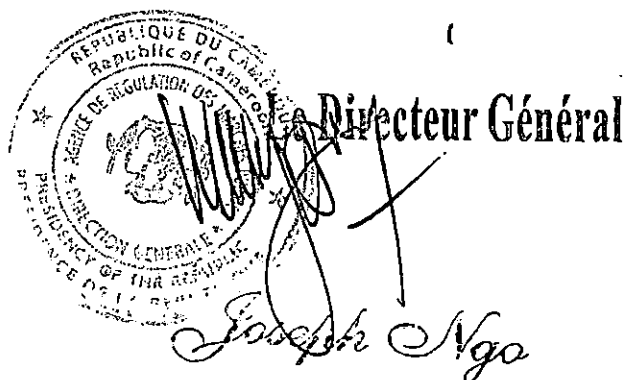 REPUBLIQUE DU
Republic of Cameroon
AGENCE DE REGULATION DES
DIRECTION GENERALE
PRESIDENCY OF THE REPUBLIC
PRESIDENCE DE LA
Le Directeur Général
Joseph Ngo